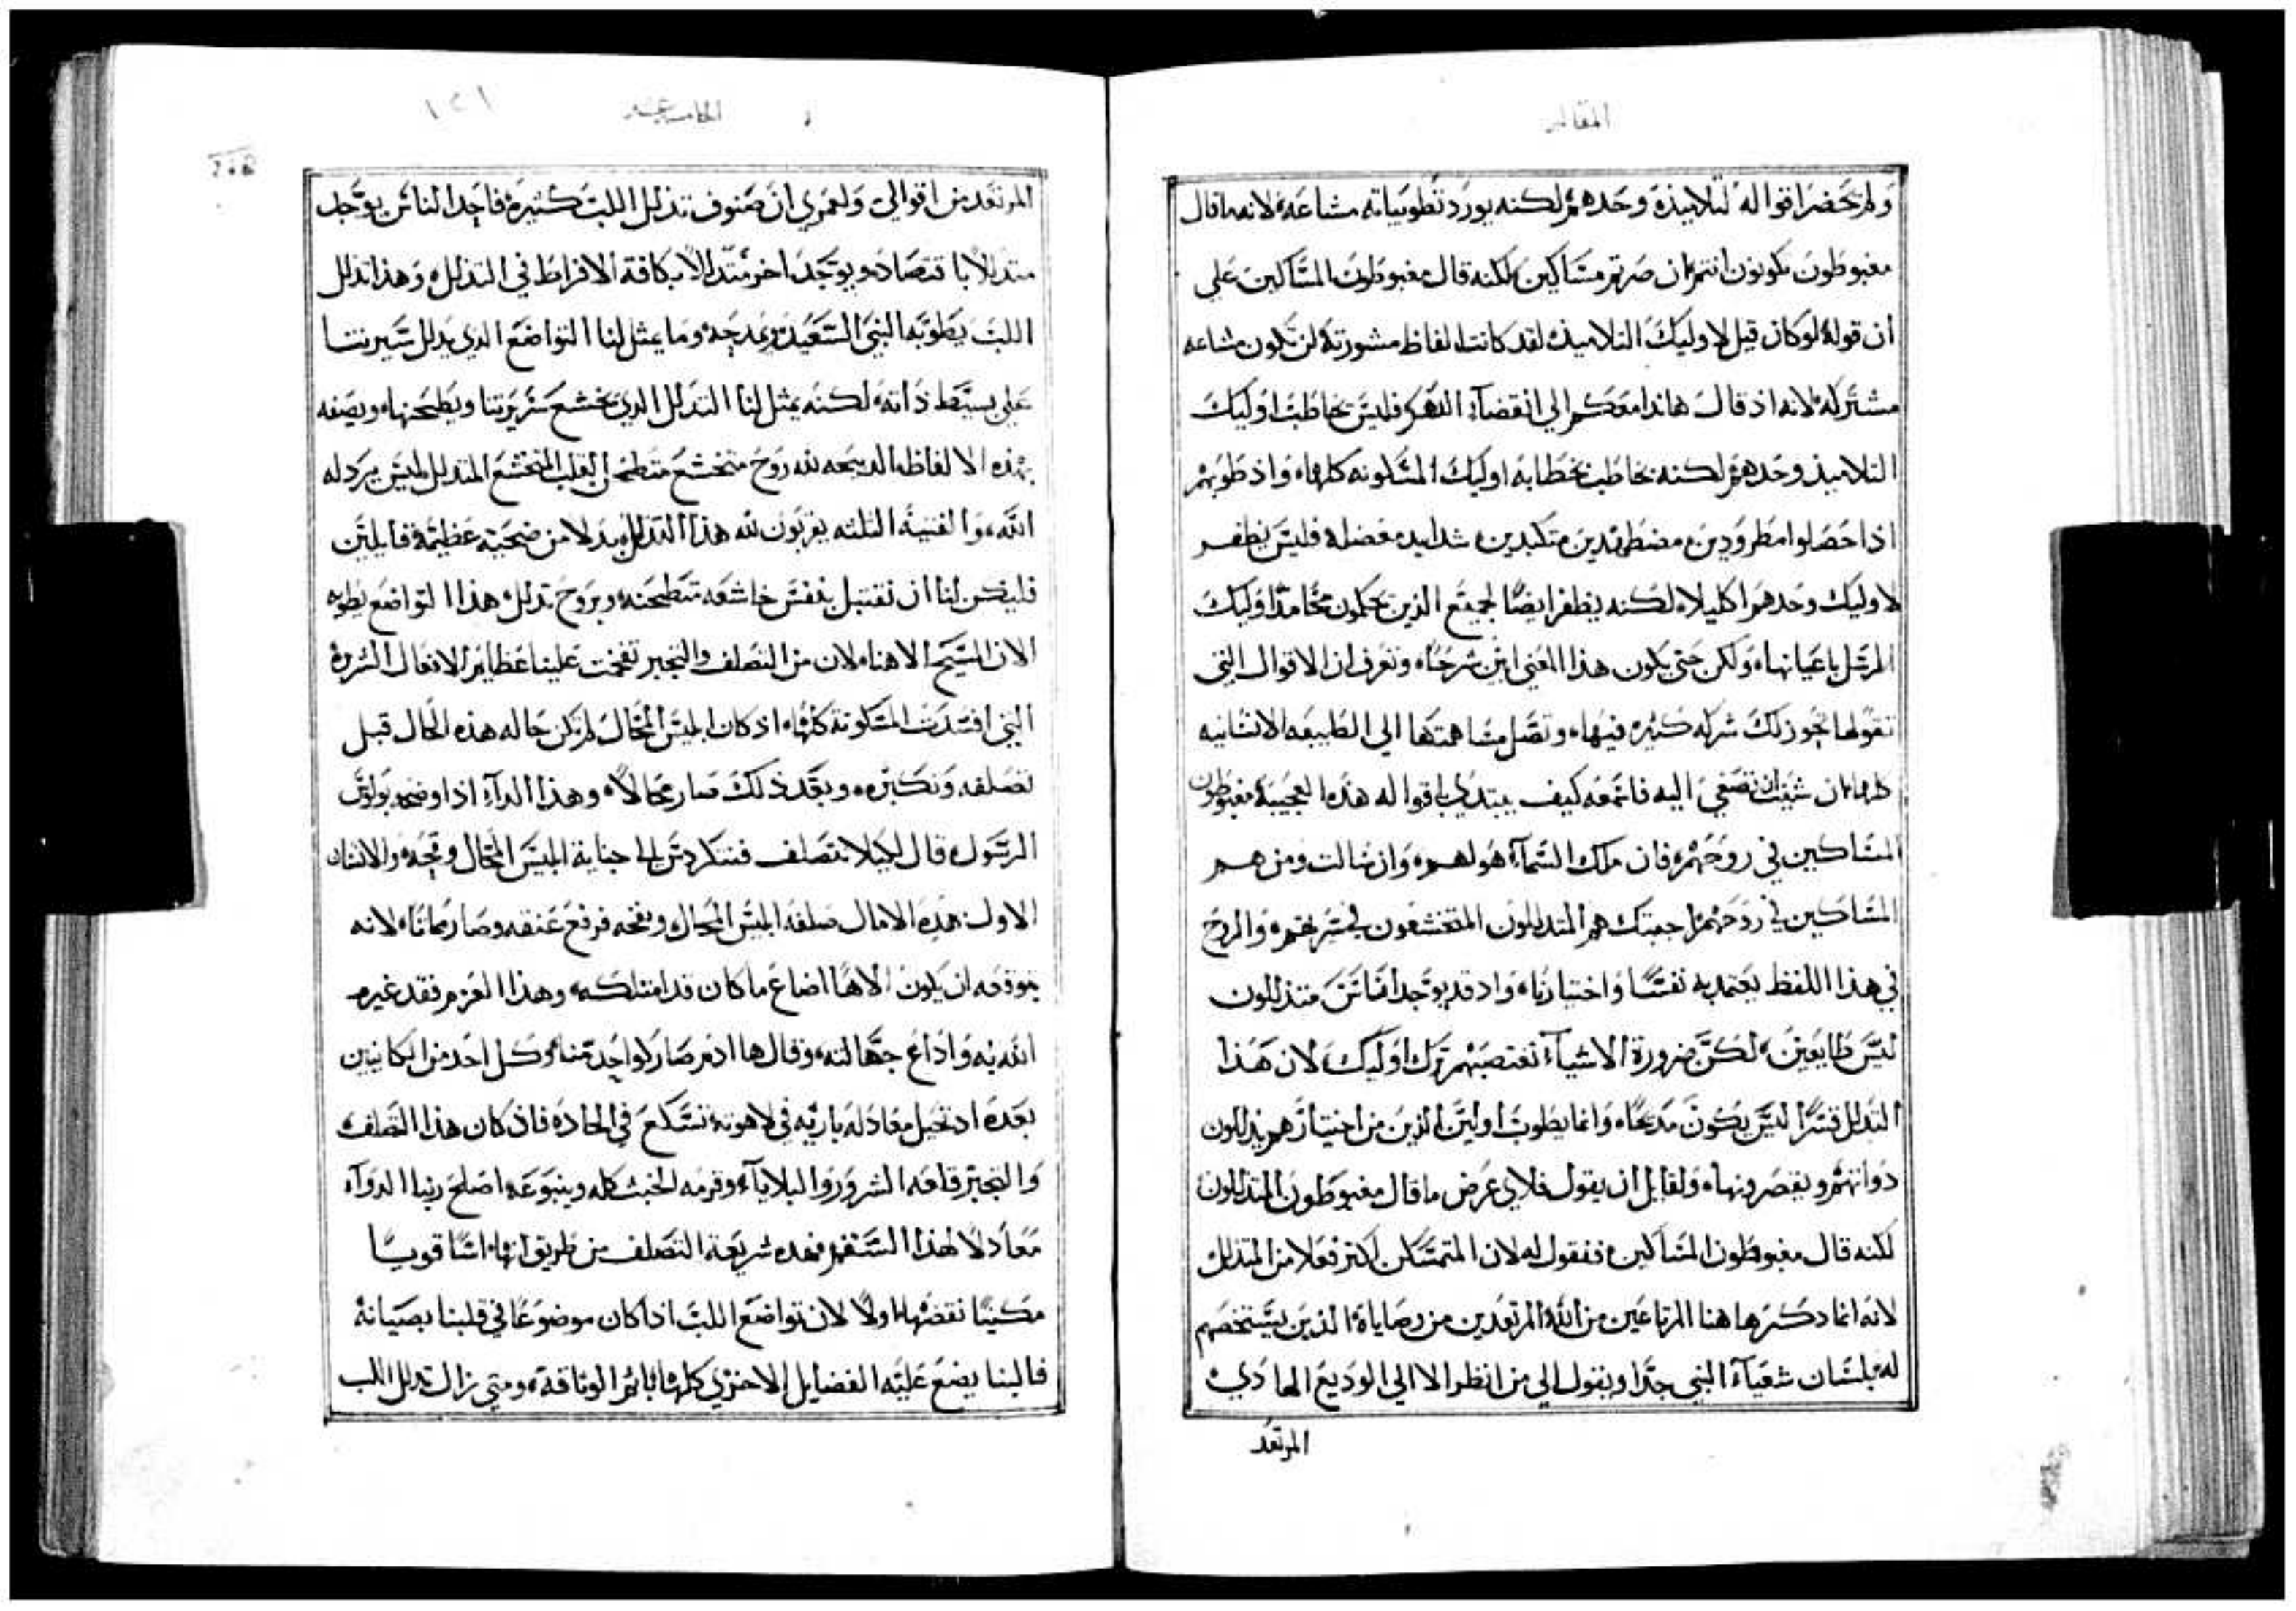 المقاله
ولم يحضر اقواله لتلاميذه وحدهم لكنه يورد تطويباته مشاعه لانه ما قال
مغبوطون تكونون انتم ان صرتم مساكين لكنه قال مغبوطون المساكين علي
ان قوله لو كان قيل لاوليك التلاميذ لقد كانت الفاظ مشورته لن تكون مشاعه
مشتركه لانه اذ قال هاندا معكم الي انقضآء الدهر فليس يخاطب اوليك
التلاميذ وحدهم لكنه يخاطب بخطابه اوليك المسكونه كلها واذ طوبهم
اذا حصلوا مطرودين مضطهدين متكبدين شدايد مفضله فليس يظفر
لاوليك وحدهم اكليلا لكنه يظفر ايضا لجميع الذين يحكمون محامد اوليك
الرسل باعيانها ولكن حتي يكون هذا المعني ابين شرحا وتعرف ان الاقوال التي
تقولها تحوز لك شركه كثيره فيها وتصل مساهمتها الي الطبيعه الانسانيه
كلها ان شيت ان تصغي اليه فاسمعه كيف يبتدي باقواله هذه العجيبة مغبوطون
المساكين في روحهم فان ملك السمآء هو لهم وان سالت ومن هم
المساكين في روحهم اجبتك هم المتدللون المتخشعون في سريرتهم والروح
في هذا اللفظ يعتمد به نفسا واختيارنا واذ قد يوجد اناس متذللون
ليس طايعين لكن ضرورة الاشيآء تغتصبهم ترك اوليك لان هذا
التدلل قسرا ليس يكون مديحا وانما يطوب اولين الذين من اختيارهم يذللون
ذواتهم ويقصرونها ولقايل ان يقول فلاي غرض ما قال مغبوطون المتدللون
لكنه قال مغبوطون المساكين فنقول له لان المتمسكن اكتر فعلا من المتدلل
لانه انما دكر هاهنا المرتاعين من الله المرتعدين من وصاياه الذين يستخصهم
له بلسان شعيآء النبي جدا ويقول الي من انظر الا الي الوديع الهادي
المرتعد
الخامسة عشر
١٢١
المرتعد من اقوالي ولعمري ان صنوف تذلل اللب كثيرة فاحد الناس يوجد
متدللا باقتصاد ويوجد اخر متدللا بكافة الافراط في التذلل وهذا تدلل
اللب يطوبه النبي السعيد ويمدحه وما يمثل لنا التواضع الدي يدلل سيرتنا
علي بسيط ذاته لكنه يمثل لنا التدلل الدي يخشع سريرتنا ويطحنها ويصفه
بهذه الالفاظ الدبيحه لله روح متخشع متطحن القلب المتخشع المتدلل ليس يرذله
الله والفتية التلته يقربون لله هذا التدلل بدلا من ضحية عظيمة قايلين
فليكن لنا ان نقتبل بنفس خاشعه متطحنه وبروح تدلل هذا التواضع يطوبه
الان المسيح الاهنا لان من التصلف والتجبر تفخمت علينا عظايم الافعال الشرره
التي افسدت المسكونة كلها اذ كان ابليس المحال لم تكن حاله هذه الحال قبل
تصلفه وتكبره وبعد ذلك صار محالا وهذا الدآء اذا وضحه بولس
الرسول قال لكيلا يتصلف فتتكردس الي جناية ابليس المحال وقبحه والانسان
الاول بهذه الامال صلفه ابليس المحال ونفخه فرفع عنقه وصار مماتا لانه
بتوقعه ان يكون الاها اضاع ما كان قد امتلكه وهذا العزم فقد غيره
الله به واذاع جهالته وقال ها ادم صار كواحد منا وكل احد من الكاينين
بعده اذ تخيل معادله باريه في لاهوته تسكع في الحاده فاذ كان هذا التصلف
والتجبر قلعه الشرور والبلاياء وقرمه الخبث كله وينبوعه اصلح ربنا الدوآء
معادلا لهذا السقم فهذه شريعة التصلف من طريق انها اسا قويا
مكينا نقضها اولا لان تواضع اللب اذا كان موضوعا في قلبنا بصيانة
فالبنا يضع عليه الفضايل الاخري كلها باتم الوثاقة ومتي زال تدلل اللب